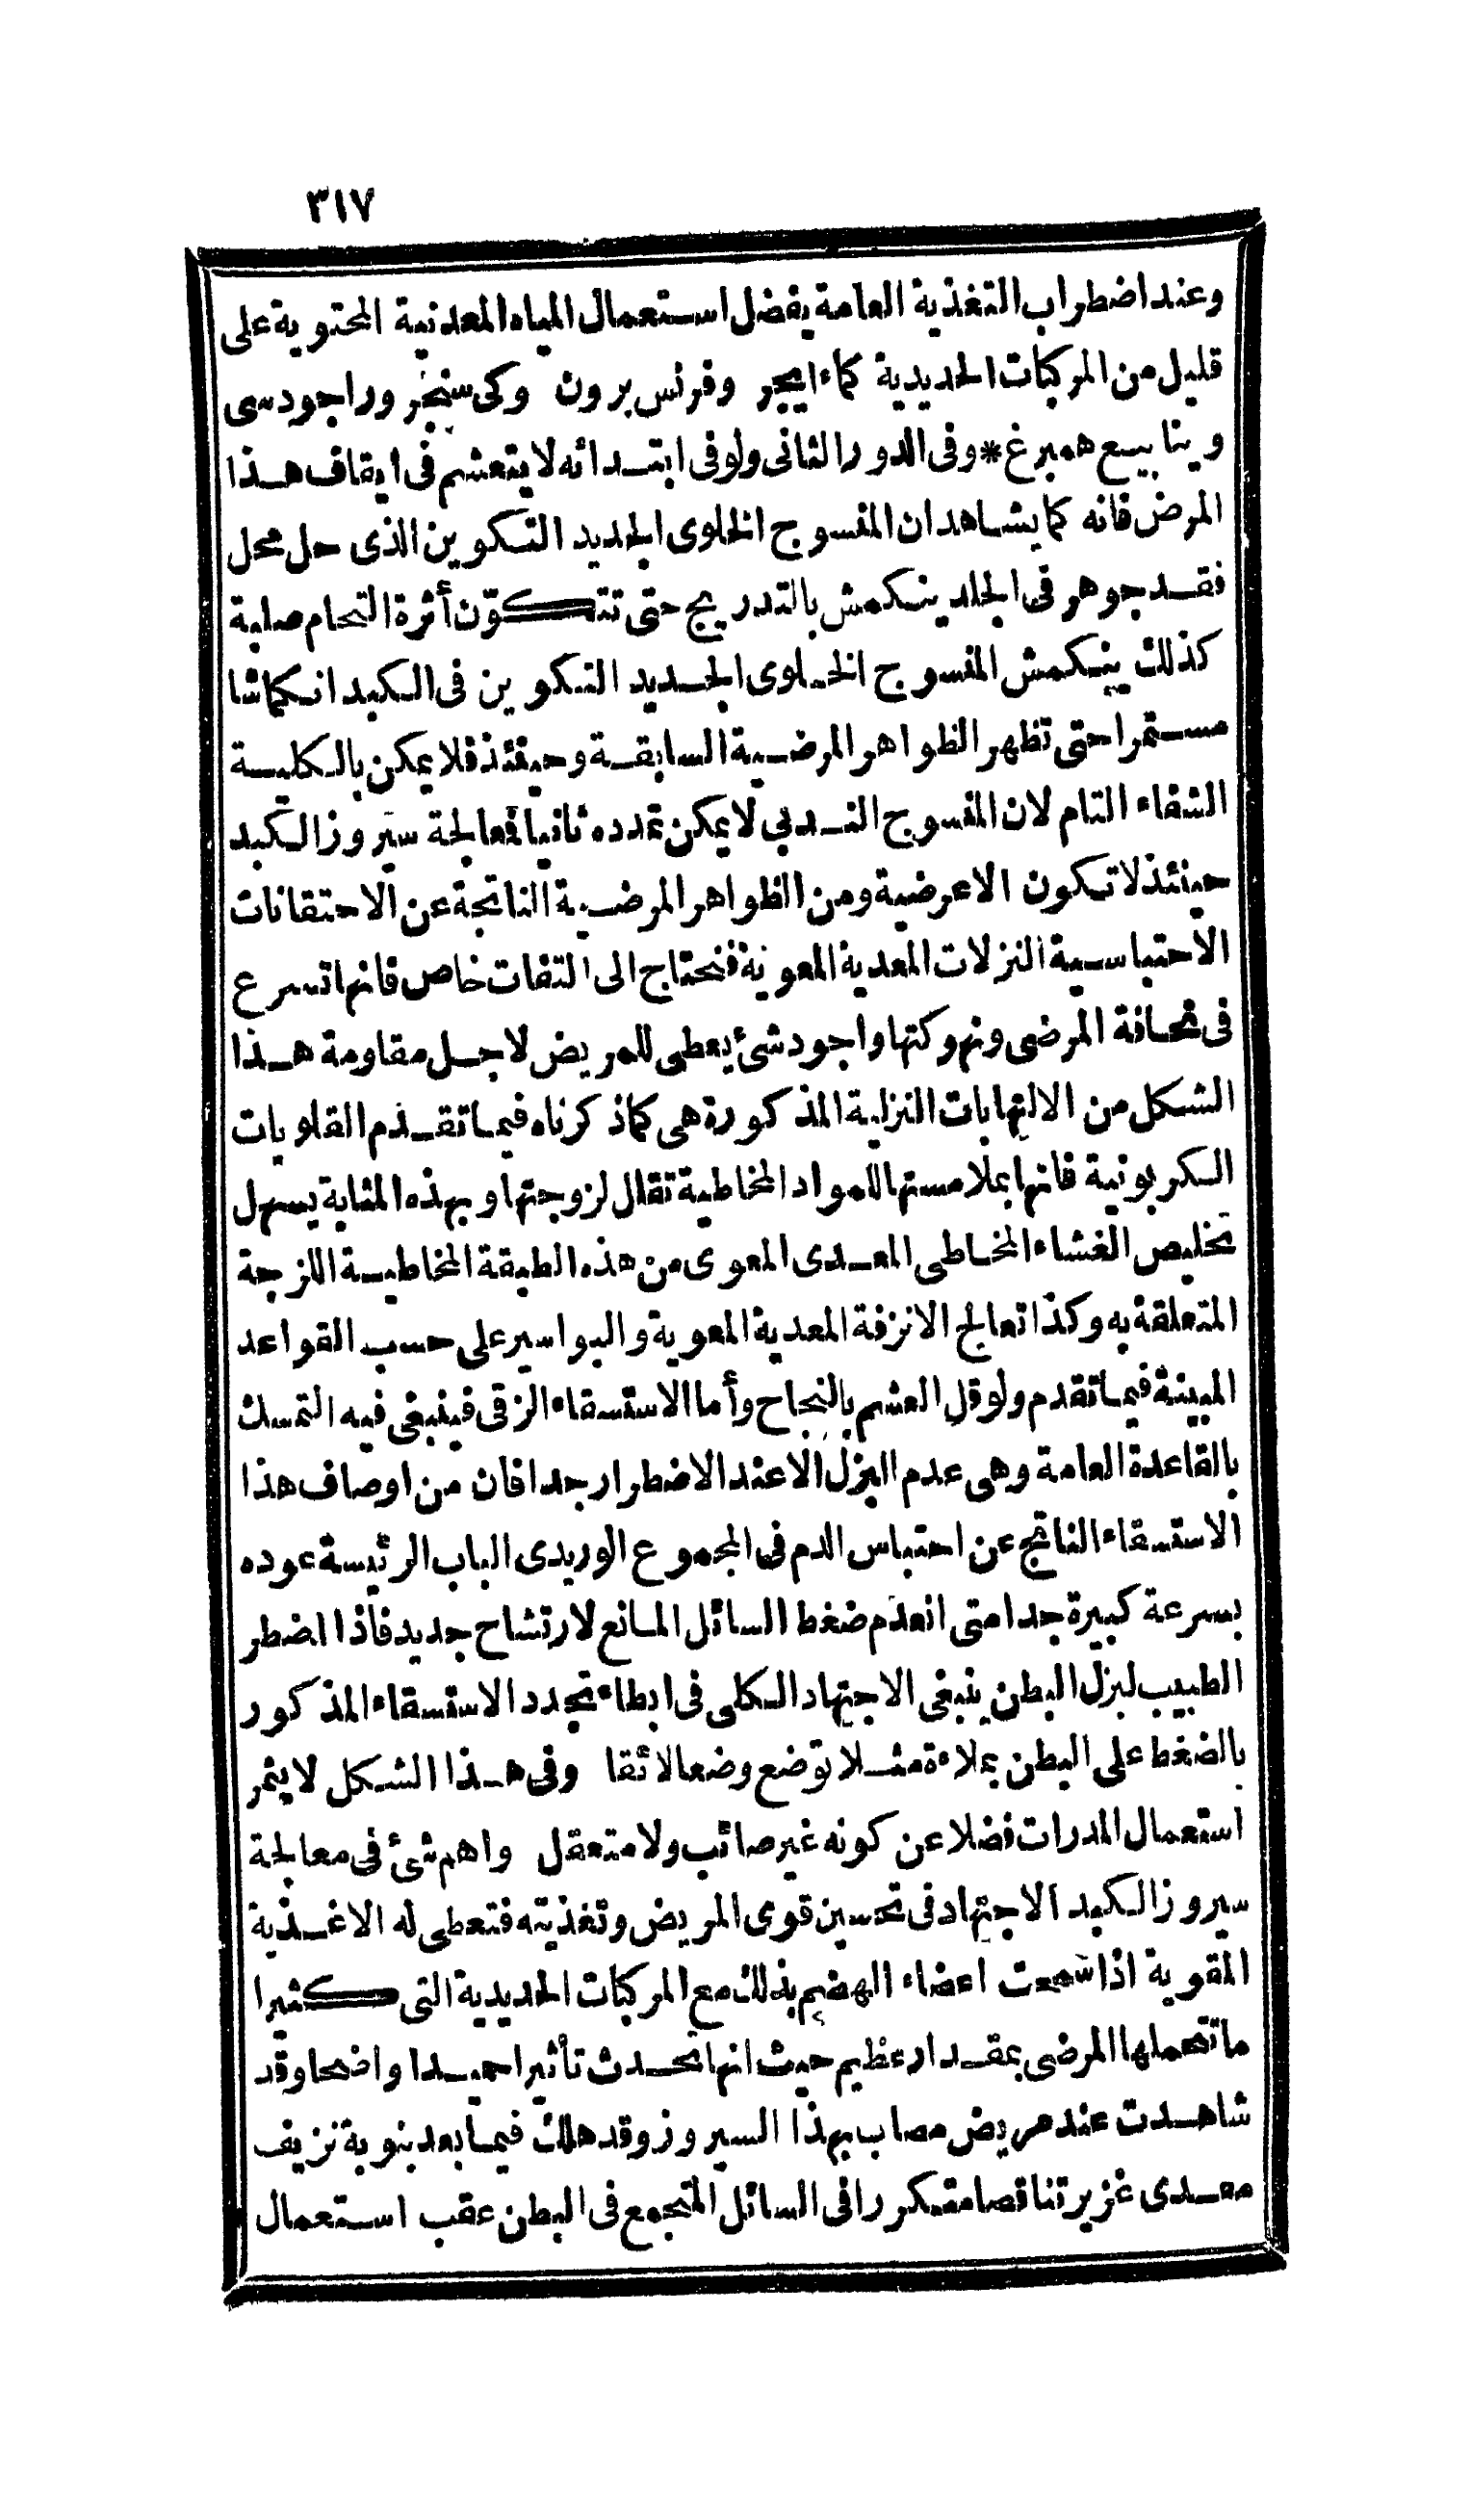 ٣١٧
وعند اضطراب التغذية العامة يفضل استعمال المياه المعدنية المحتوية على
قليل من المركبات الحديدية كماء ايجر وفرنس برون وكى سنجر وراجودسى
وينابيع همبرغ * وفى الدور الثانى ولو فى ابتدائه لا يتعشم فى ايقاف هذا
المرض فانه كما يشاهد ان المنسوج الخلوى الجديد التكوين الذى حل محل
فقد جوهر فى الجلد ينكمش بالتدريج حتى تتكوّن أثرة التحام صلبة
كذلك ينكمش المنسوج الخلوى الجديد التكوين فى الكبد انكماشا
مستمرا حتى تظهر الظواهر المرضية السابقة وحينئذ فلا يمكن بالكلية
الشفاء التام لان المنسوج الندبى لا يمكن تمدده ثانيا فمعالجة سيروز الكبد
حينئذ لا تكون الا عرضية ومن الظواهر المرضية الناتجة عن الاحتقانات
الاحتباسية النزلات المعدية المعوية فتحتاج الى التفات خاص فانها تسرع
فى نحافة المرضى ونهوكتها واجود شئ يعطى للمريض لاجل مقاومة هذا
الشكل من الالتهابات النزلية المذكورة هى كما ذكرناه فيما تقدم القلويات
الكربونية فانها بملامستها للمواد المخاطية تقلل لزوجتها وبهذه المثابة يسهل
تخليص الغشاء المخاطى المعدى المعوى من هذه الطبقة المخاطية اللزجة
المتعلقة به وكذا تعالج الانزفة المعدية المعوية والبواسير على حسب القواعد
المبينة فيما تقدم ولو قل العشم بالنجاح وأما الاستسقاء الزقى فينبغى فيه التمسك
بالقاعدة العامة وهى عدم البزل الا عند الاضطرار جدا فان من اوصاف هذا
الاستسقاء الناتج عن احتباس الدم فى المجموع الوريدى الباب الرئيسة عوده
بسرعة كبيرة جدا متى انعدم ضغط السائل المانع لارتشاح جديد فاذا اضطر
الطبيب لبزل البطن ينبغى الاجتهاد الكلى فى ابطاء تجدد الاستسقاء المذكور
بالضغط على البطن بملاءة مثلا توضع وضعا لائقا وفى هذا الشكل لا يثمر
استعمال المدرات فضلا عن كونه غير صائب ولا متعقل واهم شئ فى معالجة
سيروز الكبد الاجتهاد فى تحسين قوى المريض وتغذيته فتعطى له الاغذية
المقوية اذا سمحت اعضاء الهضم بذلك مع المركبات الحديدية التى كثيرا
ما تحملها المرضى بمقدار عظيم حيث انها تحدث تأثيرا حميدا واضحا وقد
شاهدت عند مريض مصاب بهذا السيروز وقد هلك فيما بعد بنوبة نزيف
معدى غزير تناقصا متكررا فى السائل المتجمع فى البطن عقب استعمال